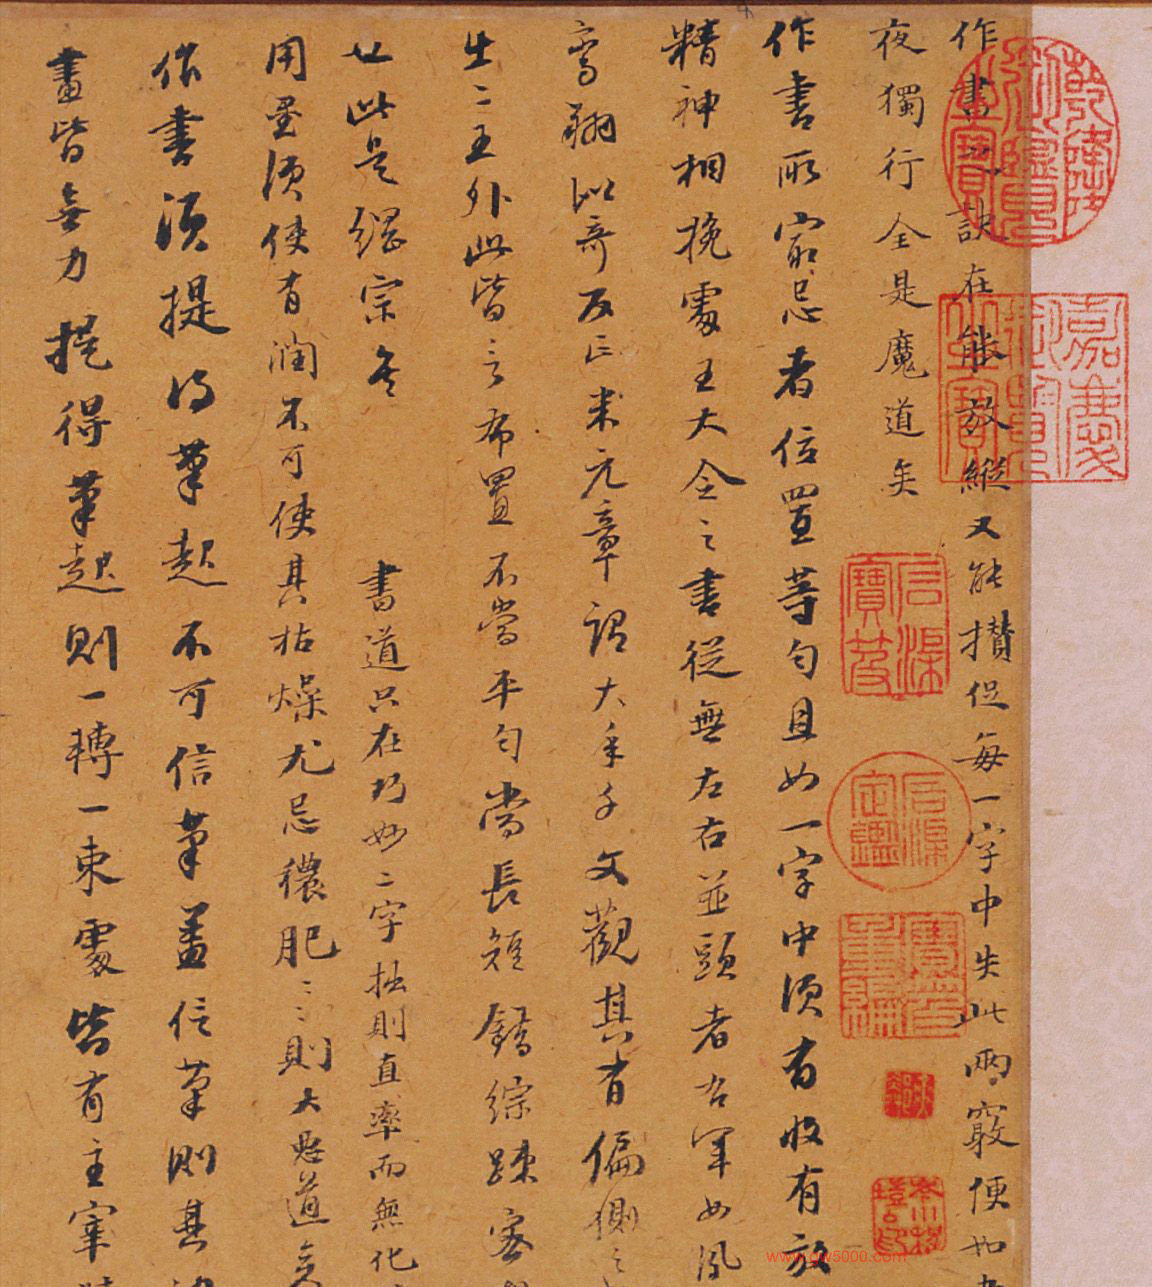 作書之訣在能放縱又能攢促每一字中失此兩竅便如
夜獨行全是魔道矣
作書所最忌者位置等勻且如一字中須有收有放
精神相挽處王大令之書從無左右並頭者右軍如鳳
鸞翔似奇反正米元章謂大年千文觀其有偏側之
出二王外此皆言布置不當平勻當長短錯綜疎密
也此是綱宗矣
書道只在巧妙二字拙則直率而無化
用墨須使有潤不可使其枯燥尤忌穠肥〻〻則大惡道矣
作書須提得筆起不可信筆蓋信筆則其
畫皆無力提得筆起則一轉一束處皆有主宰
乾隆御覽之寶
嘉慶御覽之寶
石渠寶笈
石渠定鑑
寶笈重編